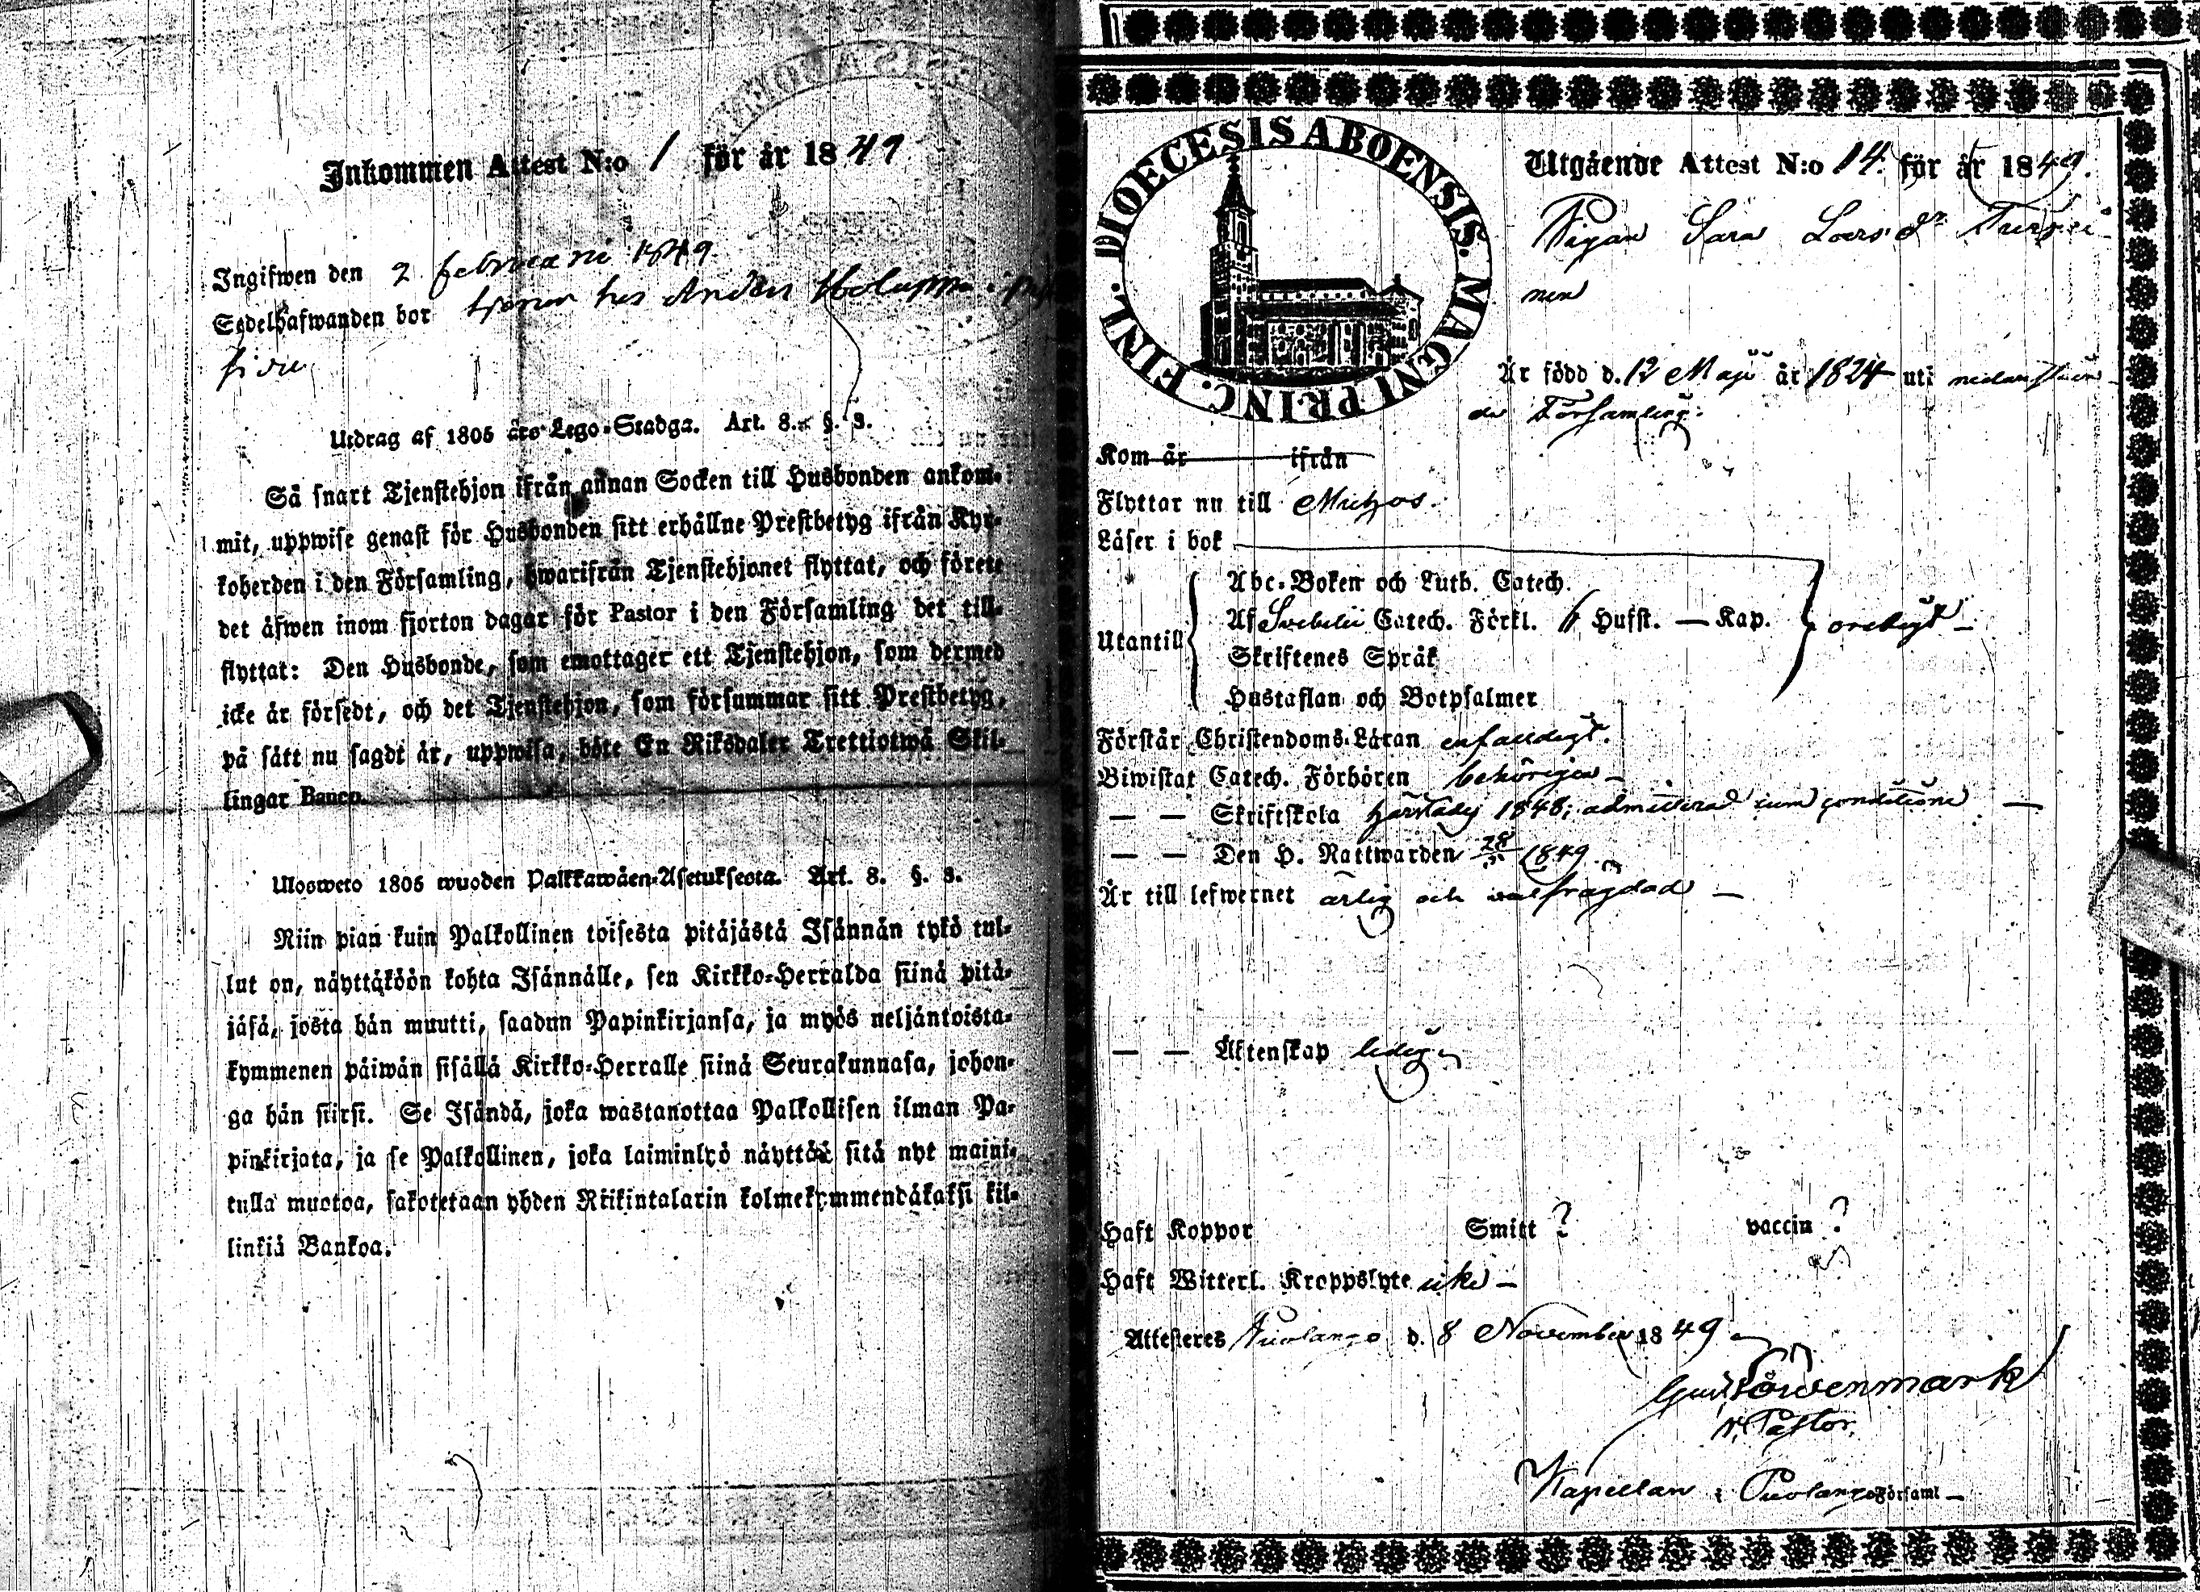 Inkommen Attest N:o 1 för år 1849
Ingifwen den 2 februari 1849
Sedelhafwanden bor tjenar hos Anders
Utdrag af 1805 års Lego-Stadga. Art. 8. §. 3.
Så snart Tjenstehjon ifrån annan Socken till Husbonden ankom-
mit, uppwise genast för Husbonden sitt erhållne Prestbetyg ifrån Kyr-
koherden i den Församling, hwarifrån Tjenstehjonet flyttat, och förete
det äfwen inom fjorton dagar för Pastor i den Församling det till-
flyttat: Den Husbonde, som emottager ett Tjenstehjon, som dermed
icke är försedt, och det Tjenstehjon, som försummar sitt Prestbetyg,
på sätt nu sagdt är, uppwisa, böte En Riksdaler Trettiotwå Skil-
lingar Banco.
Ulosweto 1805 wuoden Palkkawäen-Asetuksesta. Art. 8. §. 3.
Niin pian kuin Palkollinen toisesta pitäjästä Isännän tykö tul-
lut on, näyttäköön kohta Isännälle, sen Kirkko-Herralda siinä pitä-
jäsä, josta hän muutti, saadun Papinkirjansa, ja myös neljäntoista-
kymmenen päiwän sisällä Kirkko-Herralle siinä Seurakunnasa, johon-
ga hän siirsi. Se Isändä, joka wastanottaa Palkollisen ilman Pa-
pinkirjata, ja se Palkollinen, joka laiminlyö näyttää sitä nyt maini-
tulla muotoa, sakotetaan yhden Riikintalarin kolmekymmendäkaksi kil-
linkiä Bankoa.
DIOECESIS ABOENSIS. MAGNI PRINC. FINL.
Utgående Attest N:o 14. för år 1849.
Pigan Sara Larsdr Turpei-
nen
Är född d. 12 Maji år 1824 uti nedanståen-
de Församling.
Kom år ifrån
Flyttar nu till Muhos.
Läser i bok
Utantill
Abc-Boken och Luth. Catech.
Af Svebelii Catech. Förkl. 6 Hufst. — Kap.
Skriftenes Språk
Hustaflan och Botpsalmer
Förstår Christendoms-Läran enfaldigt.
Biwistat Catech. Förhören behörigen —
— — Skriftskola härstädes 1848; admitterad cum conditione —
— — Den H. Nattwarden 28/5 1849.
Är till lefwernet ärlig och wälfrägdad —
— — Äktenskap ledig
Haft Koppor Smitt ? vaccin ?
Haft Witterl. Kroppslyte icke —
Attesteras Puolango d. 8 November 1849
Gust Löwenmark
v. Pastor.
Kapellan i Puolango Församl —